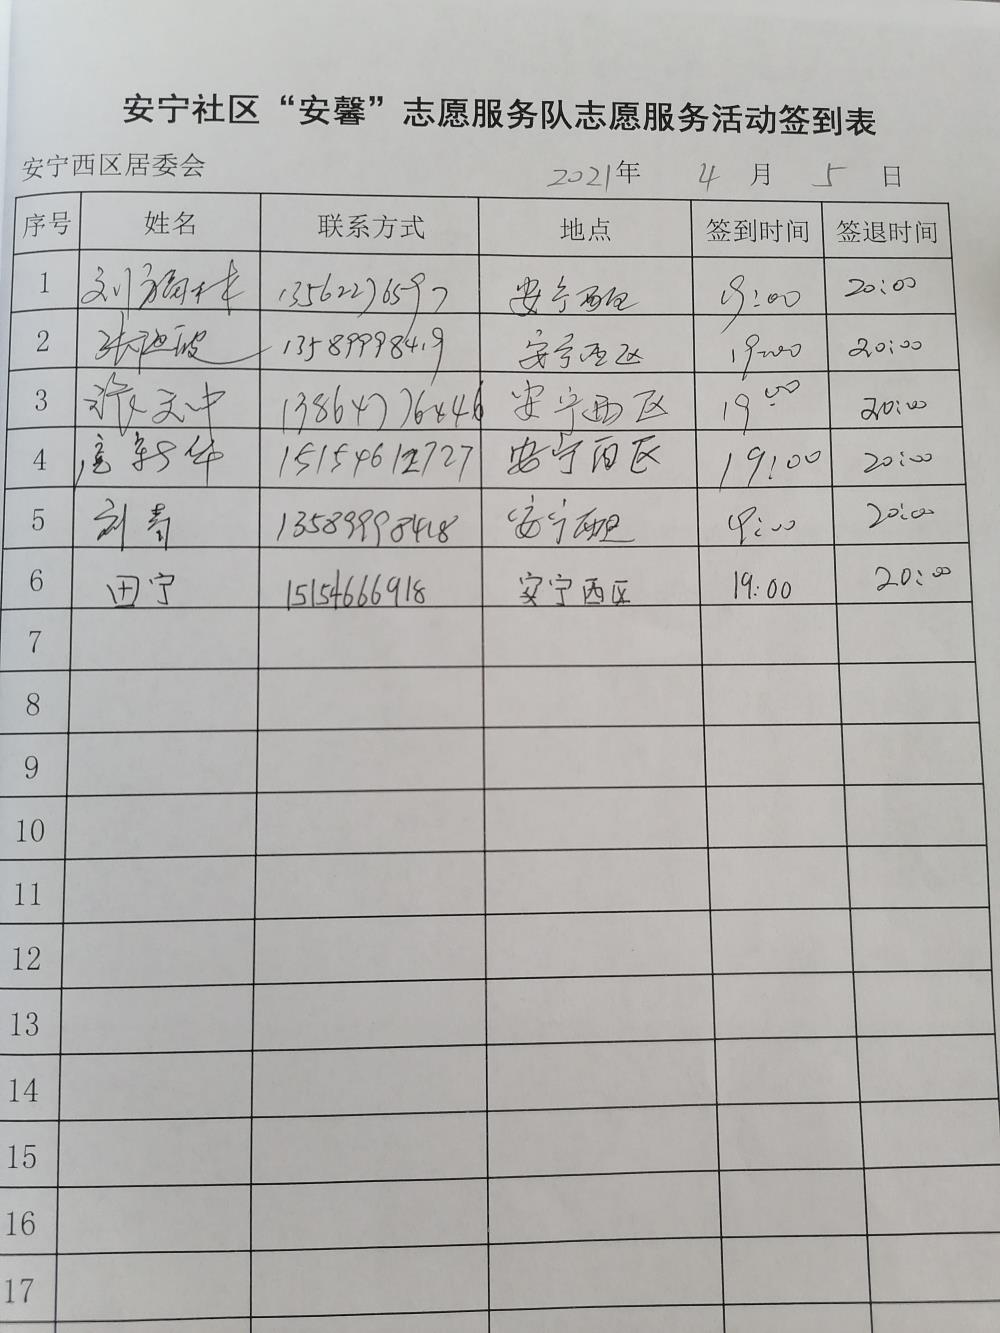 安宁社区“安馨”志愿服务队志愿服务活动签到表
安宁西区居委会 2021年 4 月 5 日
序号 姓名 联系方式 地点 签到时间 签退时间
1 13562276597 安宁西区 19:00 20:00
2 13589998419 安宁西区 19:00 20:00
3 13864776446 安宁西区 19:00 20:00
4 15154612727 安宁西区 19:00 20:00
5 刘青 13589998418 安宁西区 20:00
6 田宁 15154666918 安宁西区 19:00 20:00
7
8
9
10
11
12
13
14
15
16
17